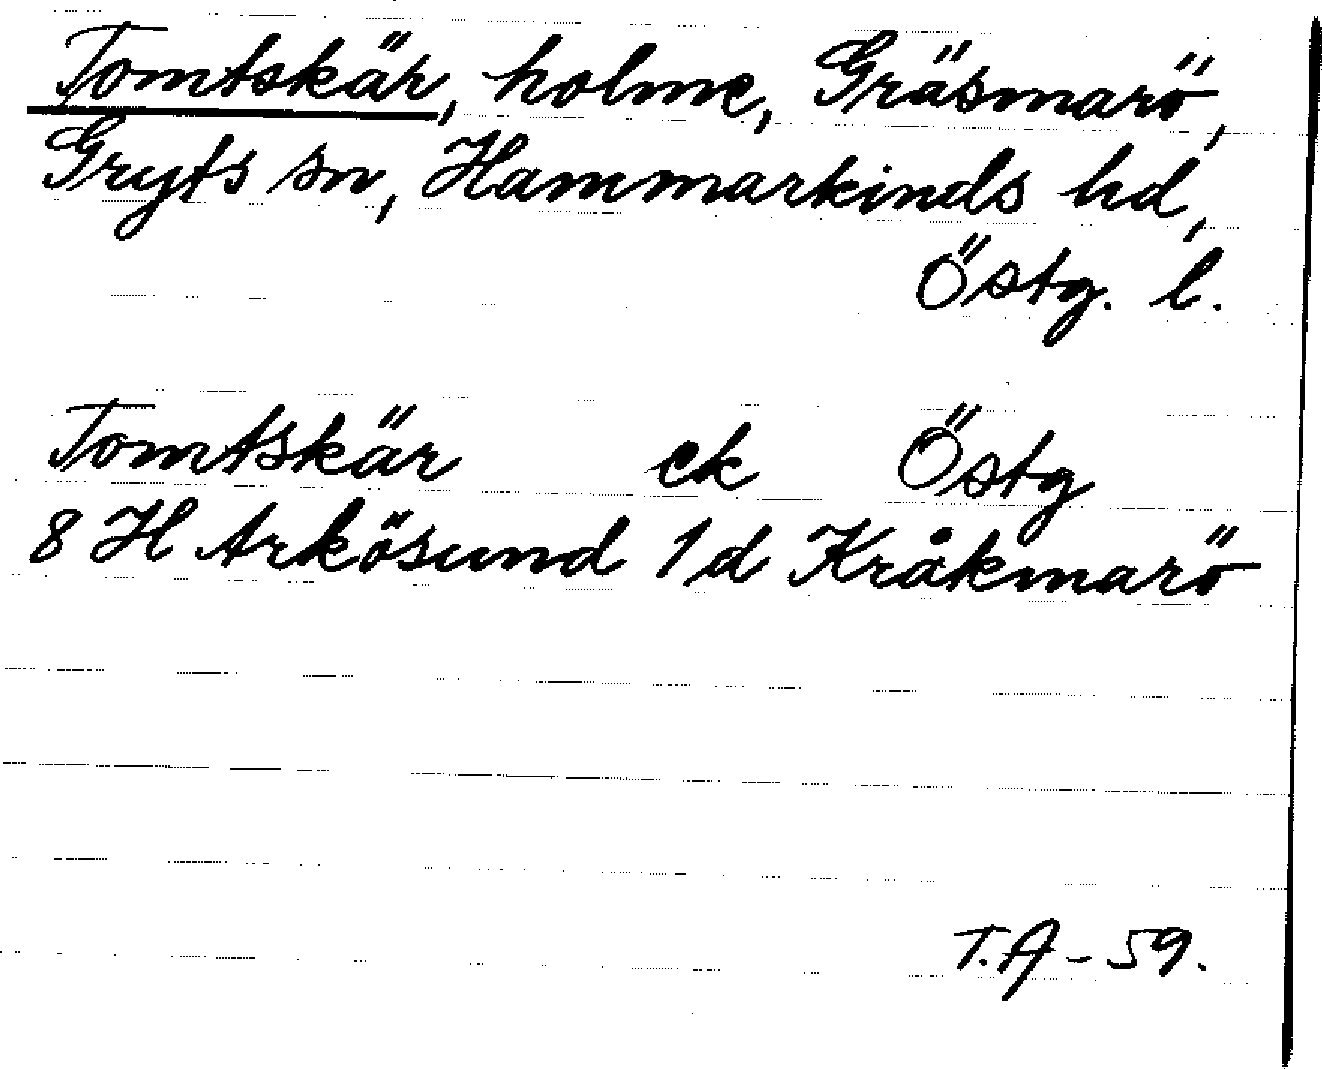 Tomtskär, holme, Gräsmarö,
Gryts sn, Hammarkinds hd,
Östg. l.
Tomtskär ek Östg
8 H Arkösund 1 d Kråkmarö
T.A - 59.